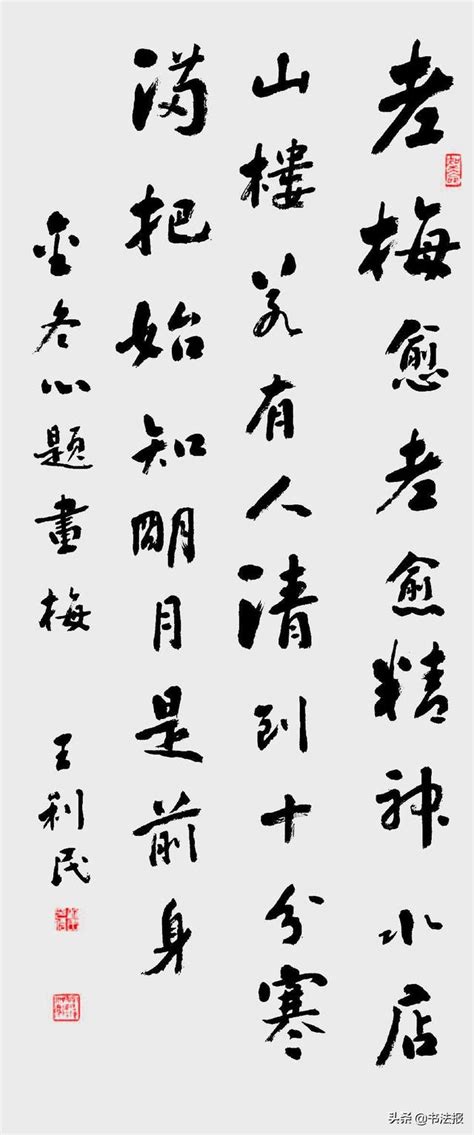 老梅愈老愈精神水店
山樓若有人清到十分寒
满把始知明月是前身
金冬心題畫梅 王利民
头条 @书法报